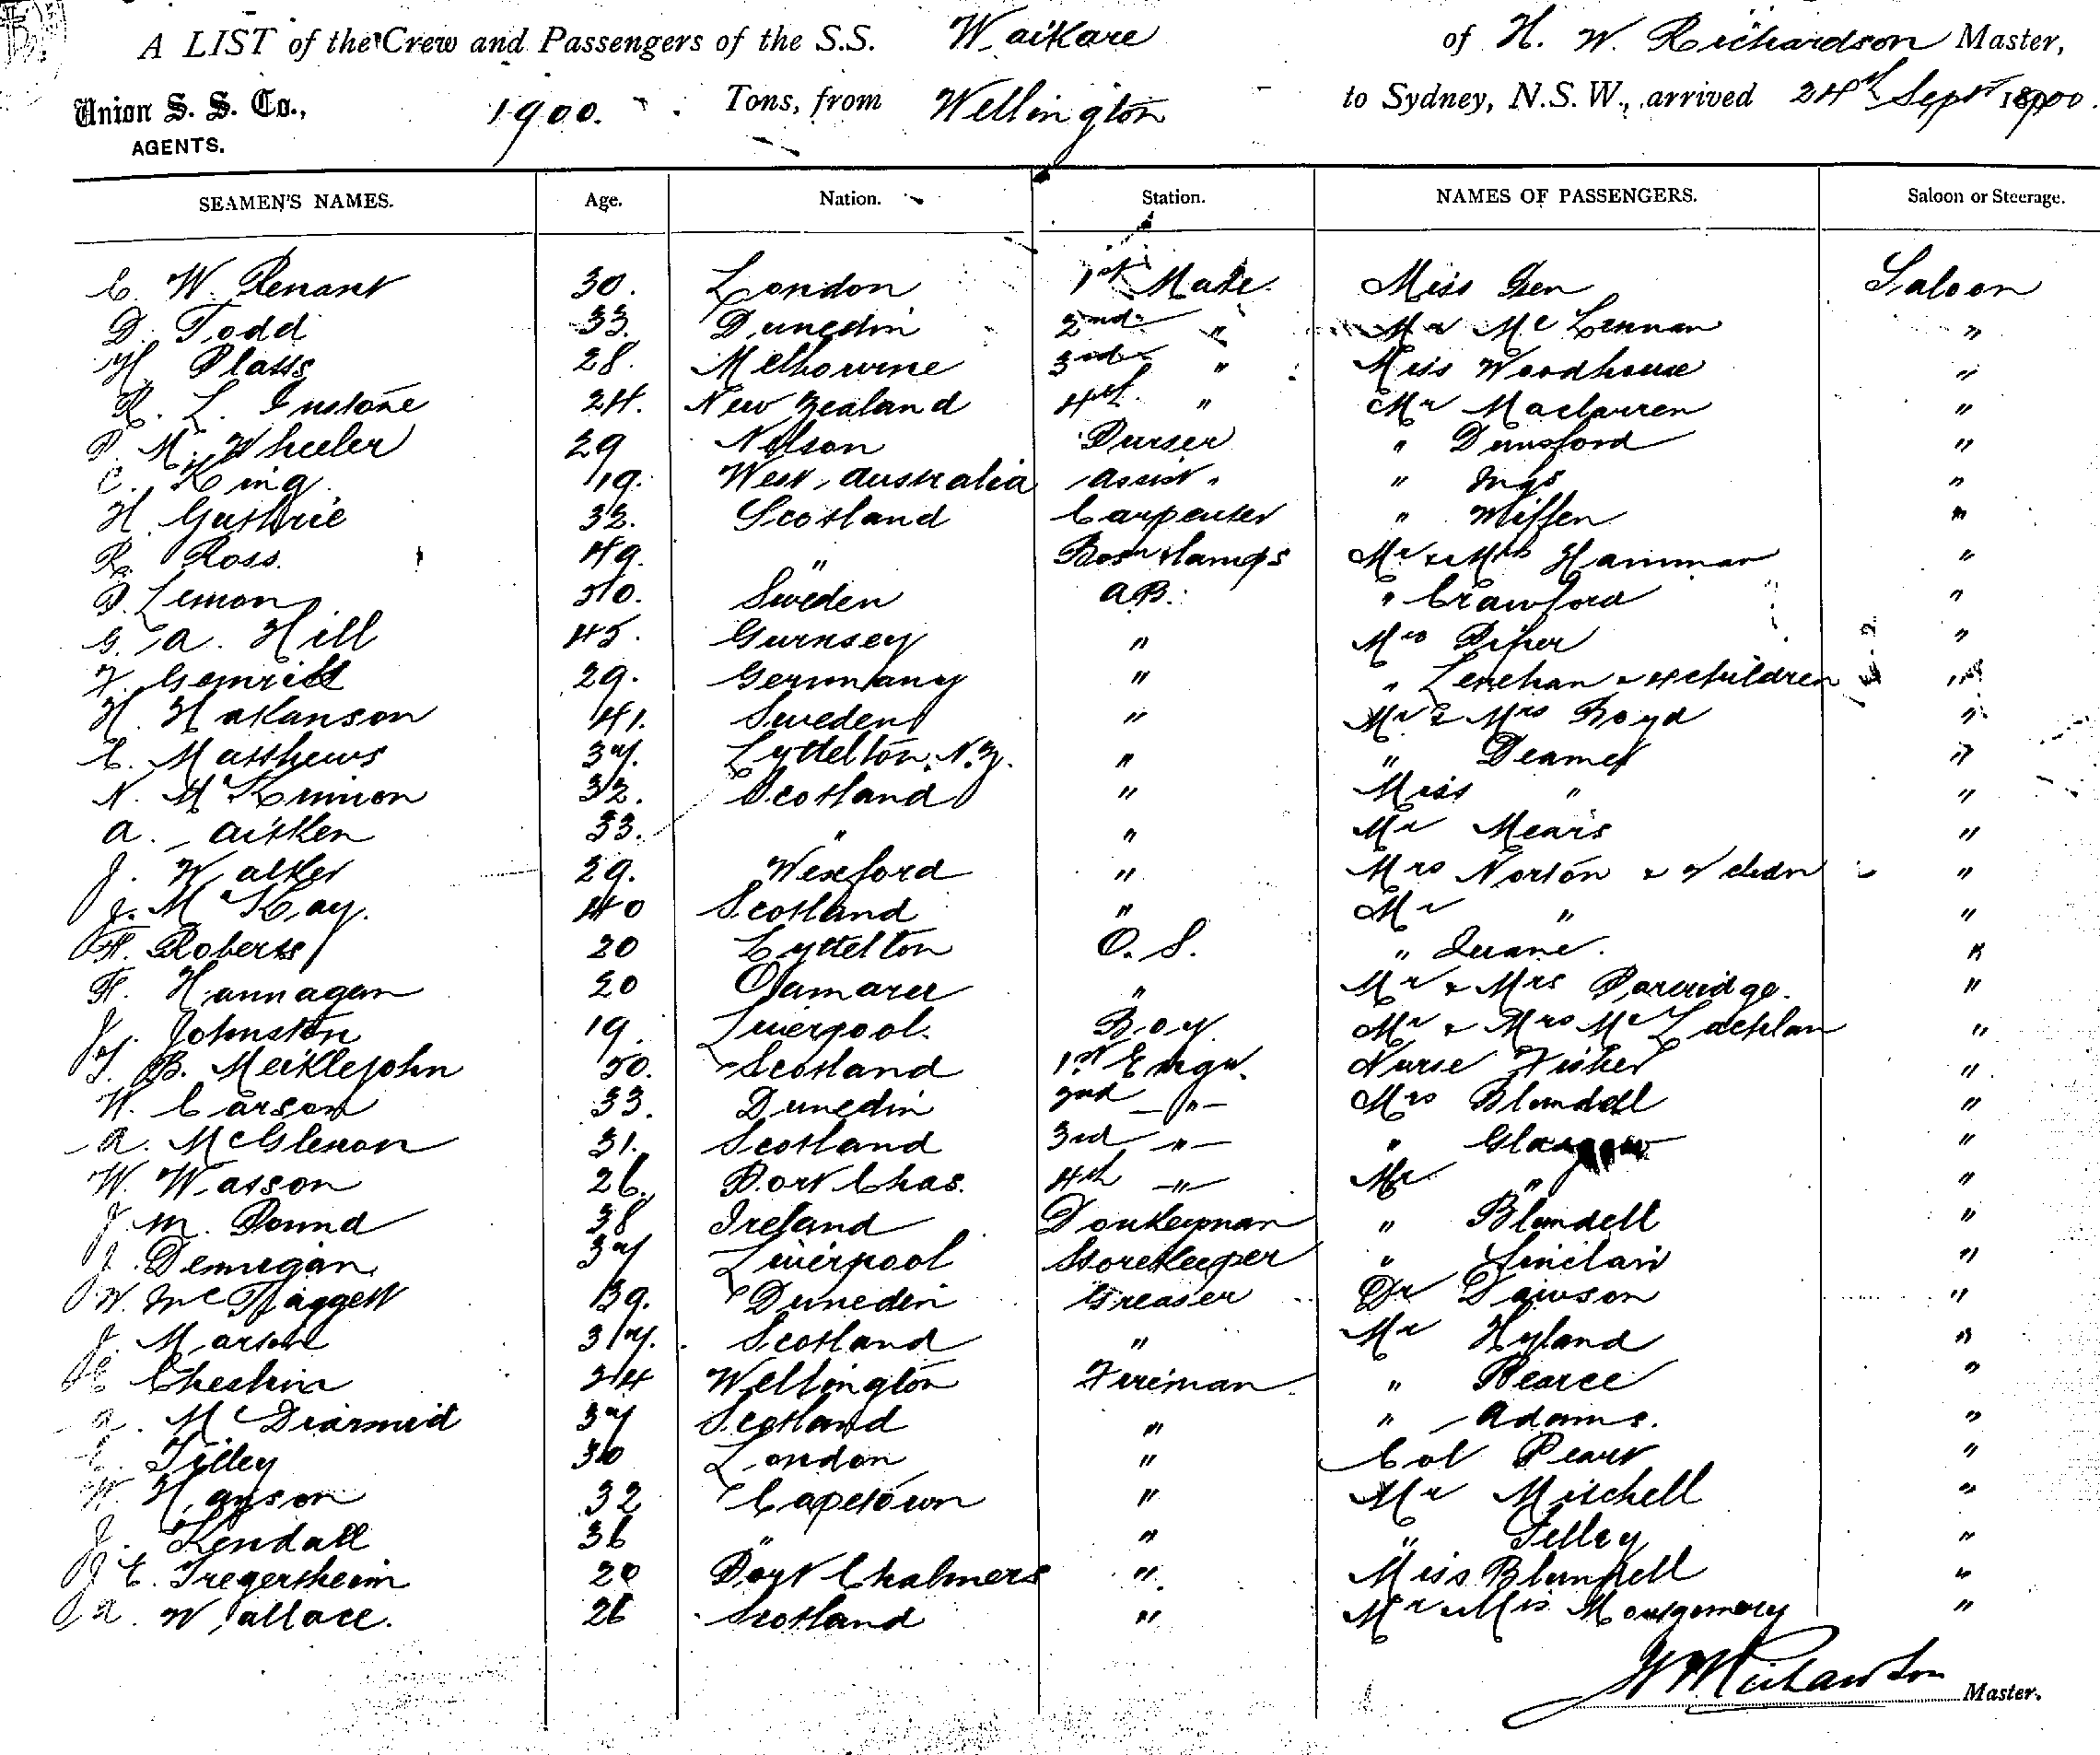 A LIST of the Crew and Passengers of the S.S. Waikare of H. W. Richardson Master,
Union S. S. Co., AGENTS. 1900. Tons, from Wellington to Sydney, N.S.W., arrived 24th Sept 1900.
SEAMEN'S NAMES. Age. Nation. Station. NAMES OF PASSENGERS. Saloon or Steerage.
C. W. Renant 30. London 1st Mate. Miss Gen Saloon
D. Todd 33. Dunedin 2nd " Mr McLennan "
H. Plass 28. Melbourne 3rd " Miss Woodhouse "
R. L. Instone 24. New Zealand 4th " Mr Maclurren "
P. M. Wheeler 29 Nelson Purser " Dunsford "
C. King. 19. West Australia Assist " " Ings "
H. Guthrie 32. Scotland Carpenter " Miffen "
R. Ross. 49. " Bosn & Lamps Mr & Mrs Hammar "
P. Lemon 50. Sweden A.B. " Crawford "
G. A. Hill 45. Gurnsey " Mrs Piper "
F. Gemritt 29. Germany " " Lenehan & 4 children "
H. Hakanson 41. Sweden " Mr & Mrs Boyd "
C. Matthews 37. Lyttelton. N.Z. " " Deamer "
N. McKinnon 32. Scotland " Miss " "
A. Aitken 33. " " Mr Mears "
J. Walker 29. Wexford " Mrs Norton & 7 chdn "
J. McKay. 40 Scotland " Mr " "
F. Roberts 20 Lyttelton O. S. " Duane. "
F. Hannagan 20 Oamaru " Mr & Mrs Partridge. "
J. Johnston 19. Liverpool. Boy. Mr & Mrs McLachlan "
T. B. Meiklejohn 50. Scotland 1st Engr. Nurse Fisher "
W. Carson 33. Dunedin 2nd " Mrs Blundell "
A. McGlenon 31. Scotland 3rd " " Glasgow "
W. Wasson 26. Port Chas. 4th " Mr " "
J. M. Pound 38 Ireland Donkeyman " Blundell "
J. Dennigan 37 Liverpool Storekeeper " Sinclair "
W. McTaggett 39. Dunedin Greaser Dr Dawson "
J. Martin 37. Scotland " Mr Hyland "
Cheshire 24 Wellington Fireman " Pearce "
A. McDiarmid 37 Scotland " " Adams. "
Tilley 30 London " Col Peart "
W. Hanson 32 Capetown " Mr Mitchell "
J. Kendall 36 " " " Telley "
J. C. Tregertheim 20 Port Chalmers " Miss Blundell "
A. Wallace. 26 Scotland " Mr & Mrs Montgomery "
H W Richardson Master.